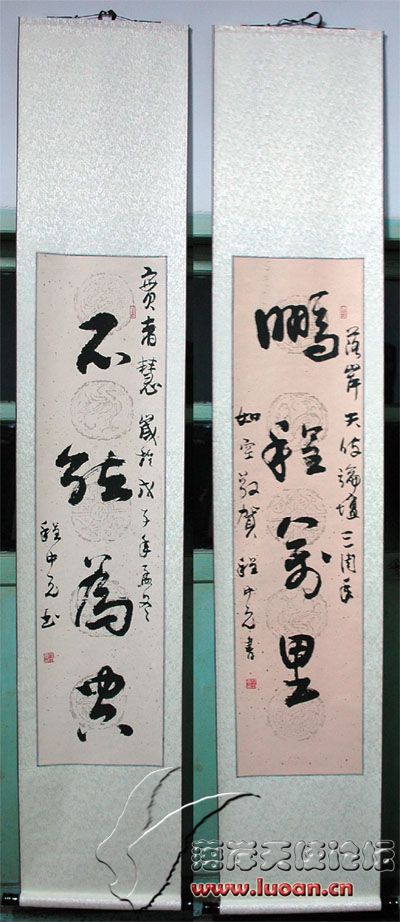 鵬程萬里
落岸天使論壇三周年
如空敬賀 程中元書
歲於戊子年孟冬
不能為典
程中元书
落岸天使论坛
www.luoan.cn